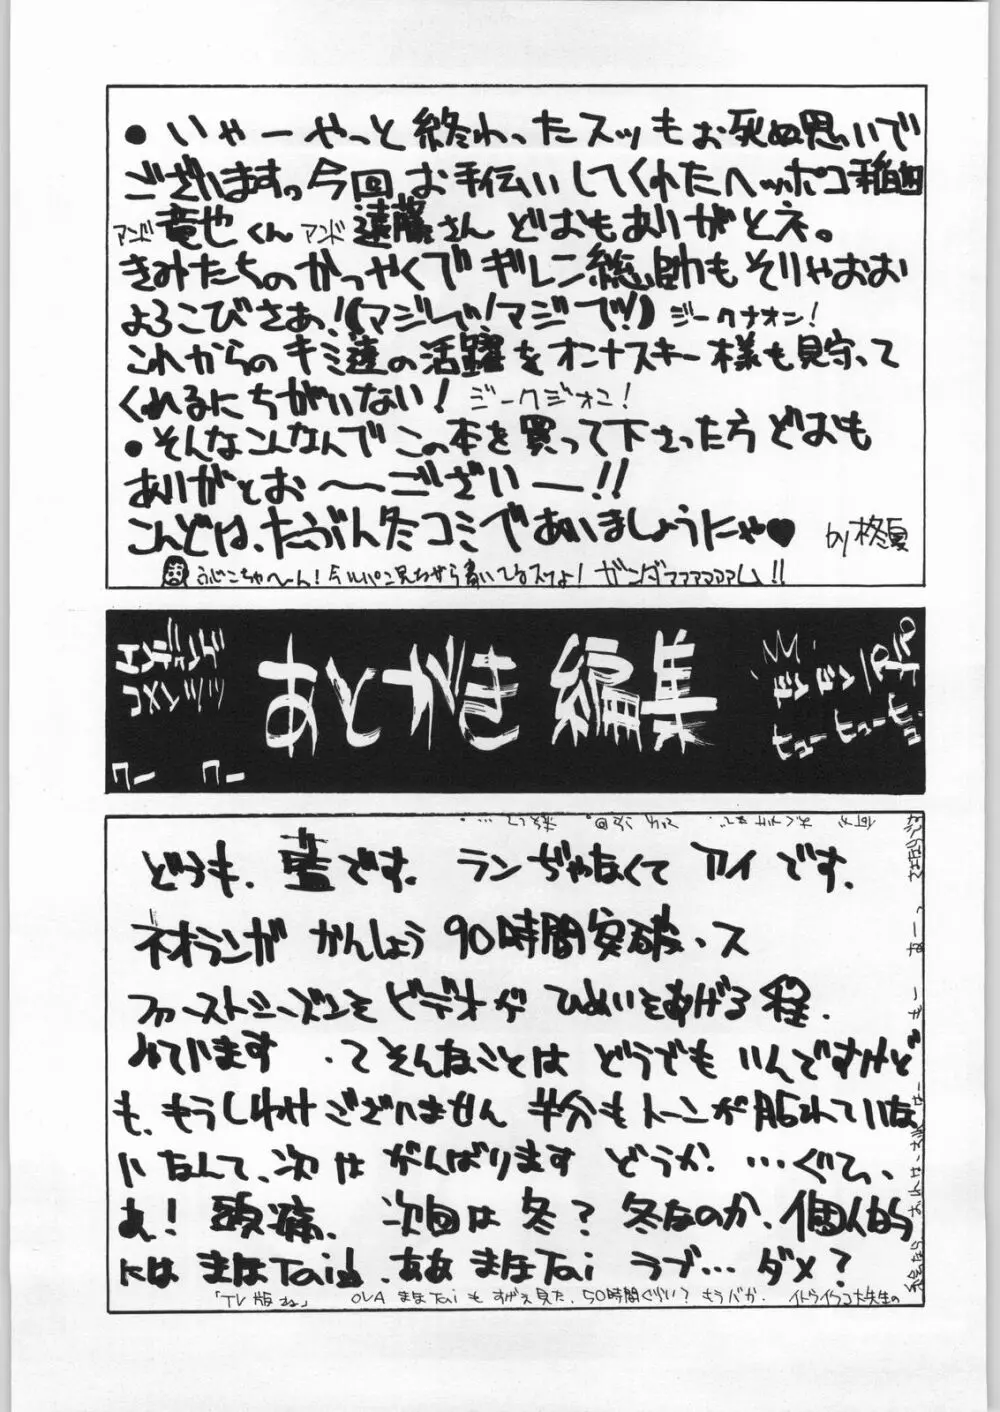 ●いやーやっと終わったスッもお死ぬ思いで
ございますっ今回、お手伝いしてくれたヘッポコ稲田
アンド竜也くんアンド遠藤さんどおもありがとネ。
きみたちのかつやくでギレン総帥もそりゃおお
よろこびさあ!(マジレで!マジで!!)ジークナオン!
これからのキミ達の活躍をオンナスキー様も見守って
くれるにちがいない!ジークジオン!
●そんなこんなんでこの本を買って下さった方どおも
ありがとお〜〜ございー!!
こんどは、たぶん冬コミであいましょうにゃ♥ by柊夏
ふじこちゃへ〜ん!今ルパン見ながら書いてるスよ!ガンダァァァァァム!!
エンディング
コメンツッ
ワー ワー
あとがき編集
ドンドンパチパチ
ヒューヒュー
どうも、藍です。ランぢゃなくてアイです。
ネオランガかんしょう90時間突破、ス
ファーストシーズンをビデオがひめいをあげる程、
みています、てそんなことはどうでもいんですけど
も、もうしわけございません半分もトーンが貼れていな
いなんて、次はがんばりますどうか…ぐでっ、
あ!頭痛、次回は冬?冬なのか、個人的
にはまほTaiを、ああまほTaiラブ…ダメ?
「TV版ね」OVAまほTaiもすげぇ見た、50時間ぐらい?もうバカ、